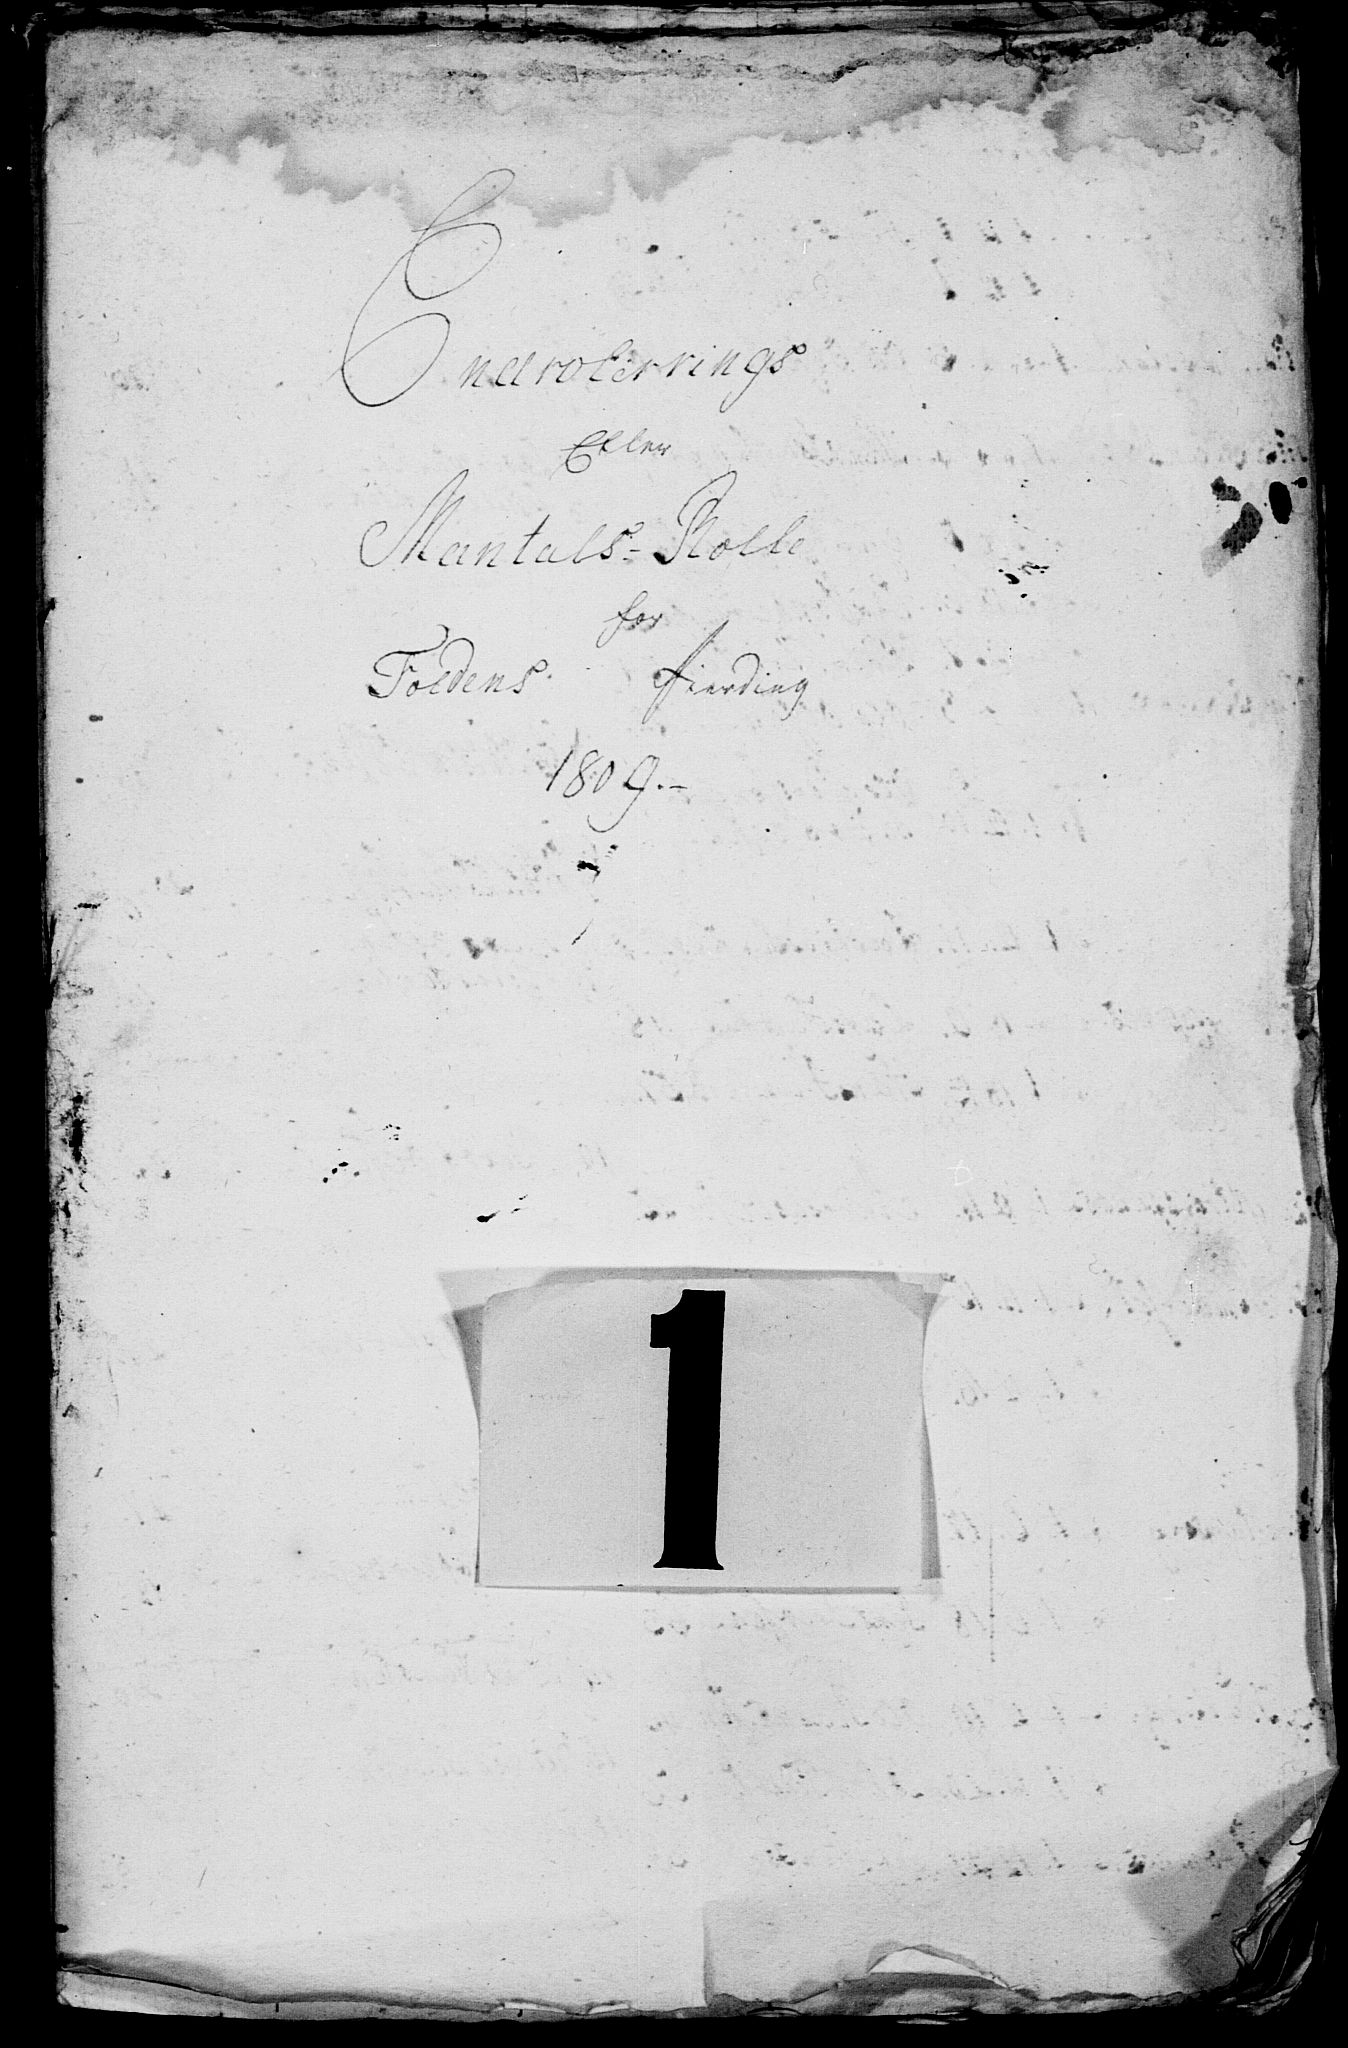 Enrolerrings
Eller
Mantals-Rolle
for
Foldens Fierding
1809.-
1